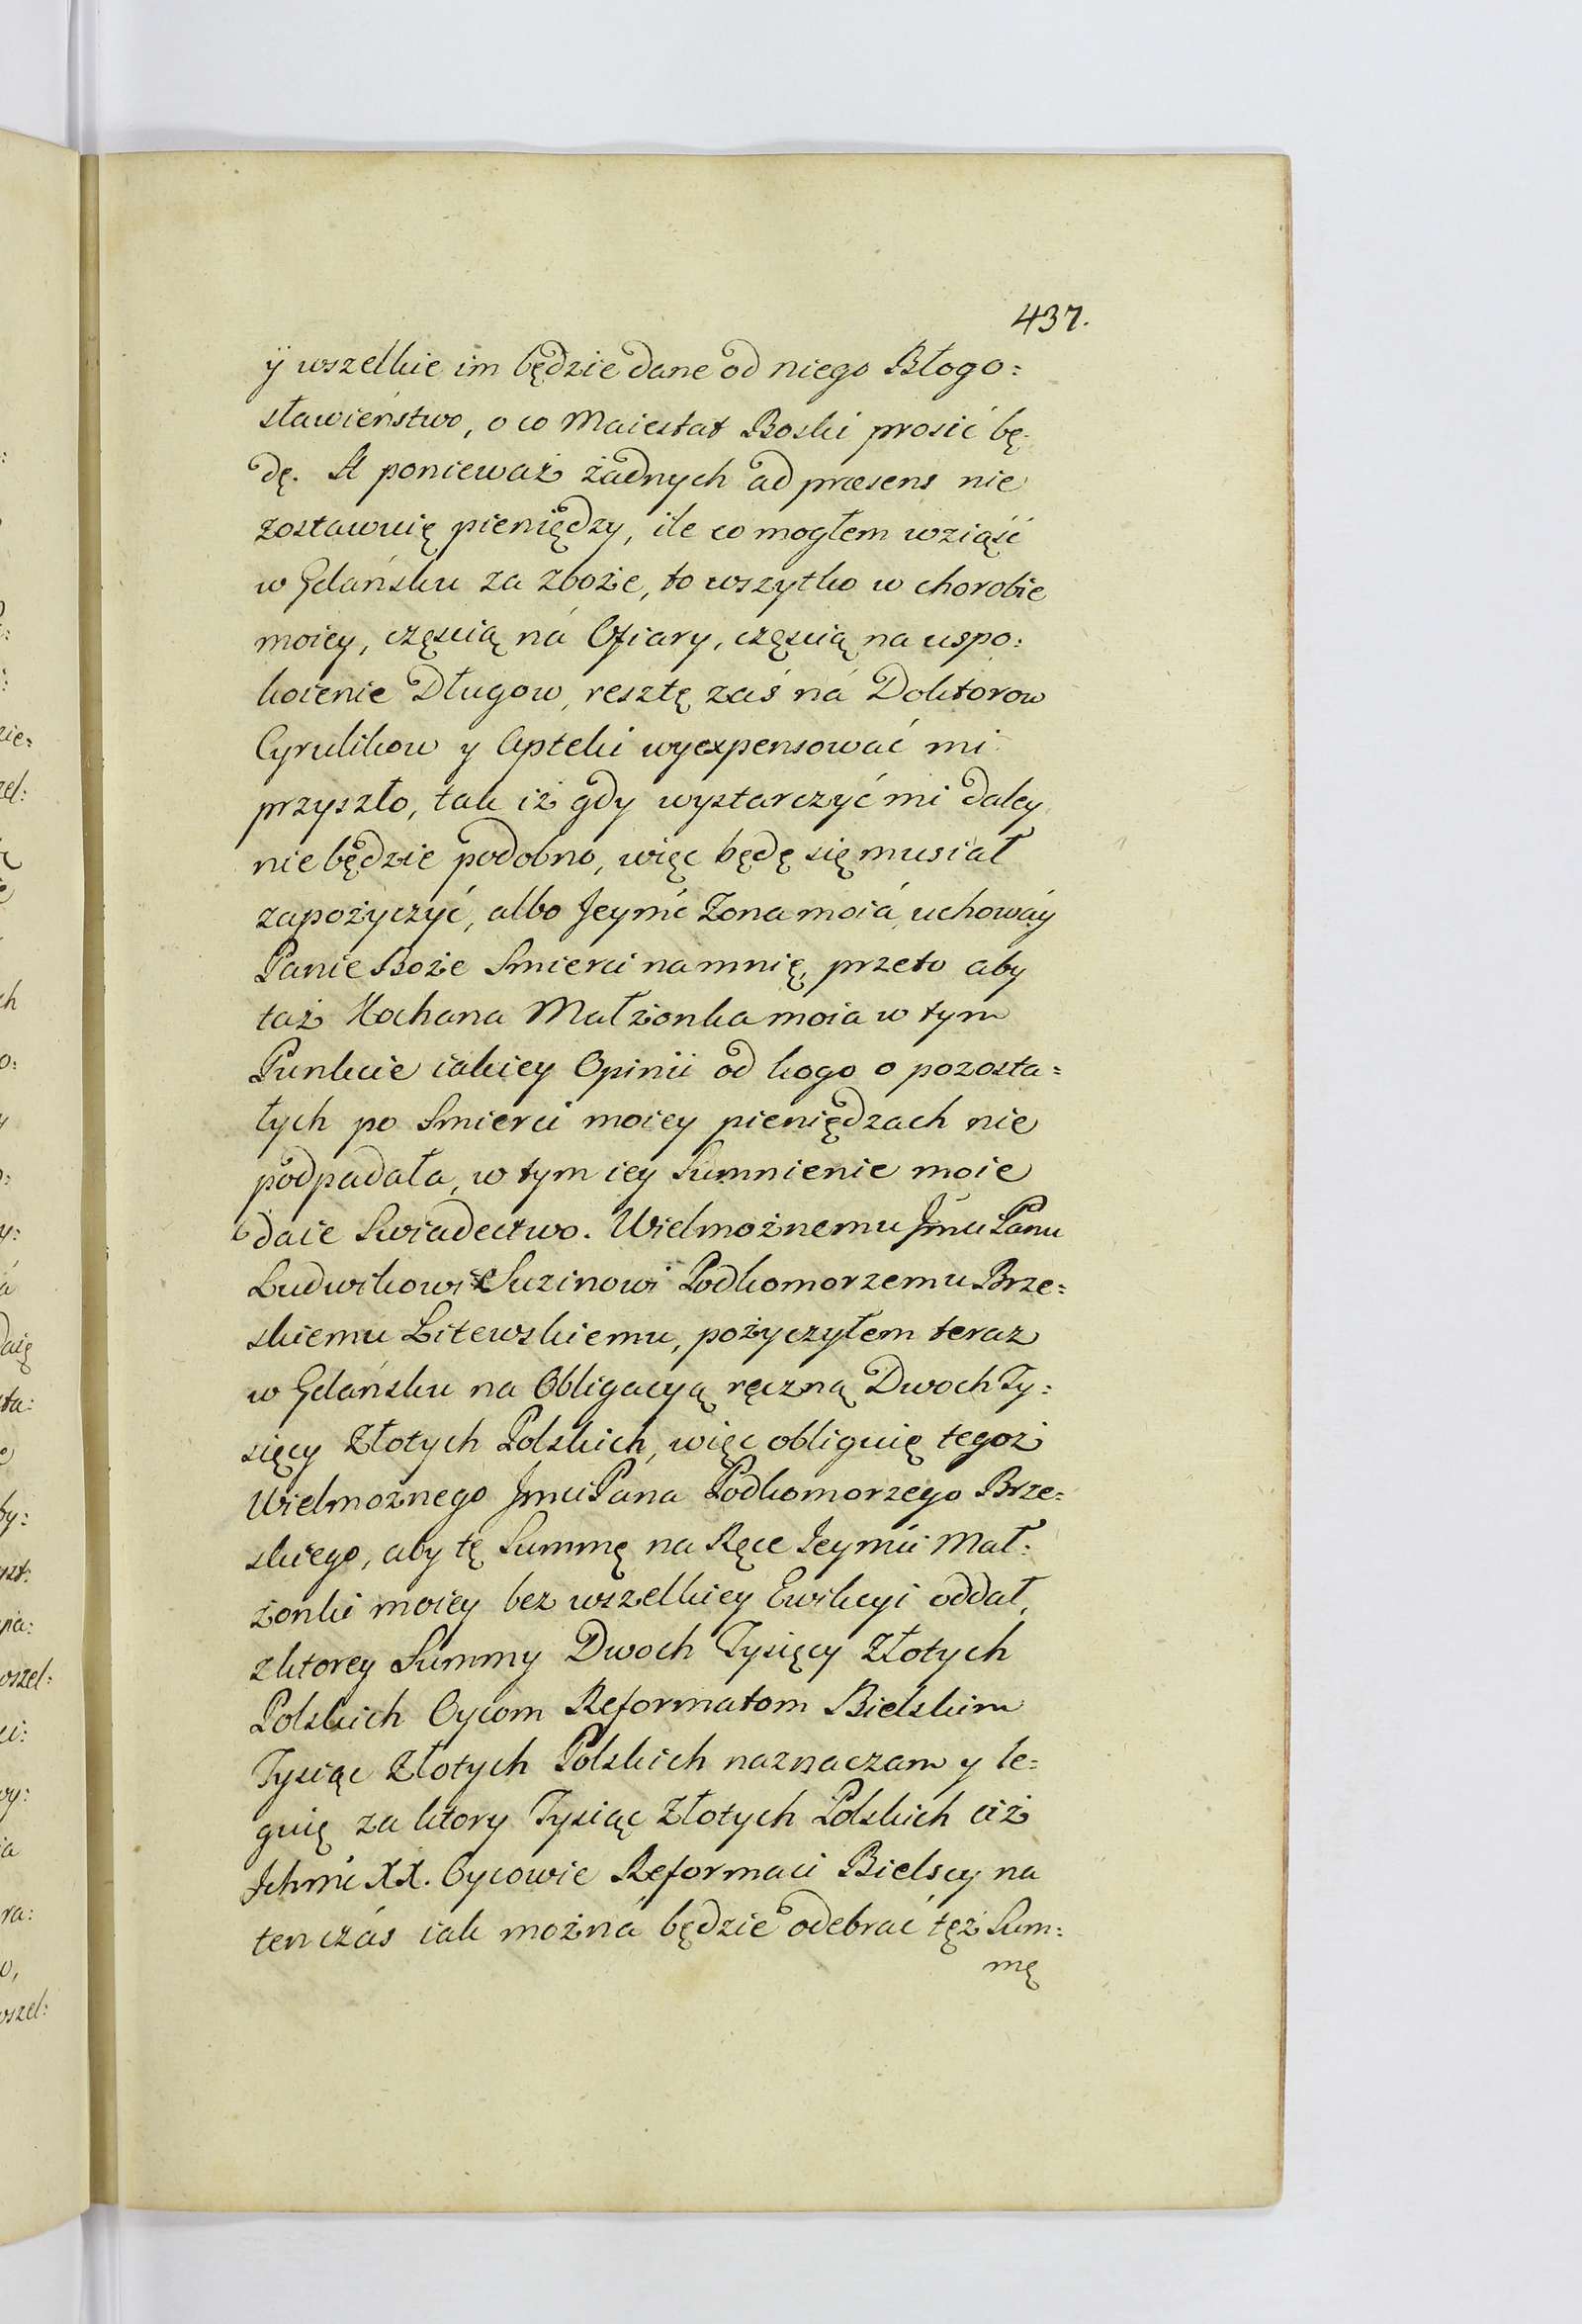 437.
ÿ wszelkie im będzie dane od niego Błogo:
sławieństwo, o co Maiestat Boski prosić bę:
dę. A ponieważ żadnych ad præsens nie
zostawuię pieniędzy, ile co mogłem wziąść
w Gdańsku za zboże, to wszytko w chorobie
moiey, częscią ná Ofiary, częscią na uspo:
koienie Długow, resztę zaś ná Doktorow
Cyrulikow y Apteki wyexpensować mi
przyszło, tak iż gdy wystarczyć mi daley
nie będzie podobno, więc będę się musiał
zapożyczyć, albo Jeymć Zona moiá, uchoway
Panie Boże Smierci na mnię, przeto aby
taż Kochana Małżonka moia w tym
Punkcie iakiey Opinii od kogo o pozosta=
łych po Smierci moiey pieniędzach nie
podpadała, w tym iey Sumnienie moie
daie Swiadectwo. Wielmożnemu Jmći Panu
Ludwikowi Suzinowi Podkomorzemu Brze=
skiemu Litewskiemu, pożyczyłem teraz
w Gdańsku na Obligacyą ręczną Dwoch Ty:
sięcy Złotych Polskich, więc obliguię tegoż
Wielmożnego Jmći Pana Podkomorzego Brze=
skiego, aby tę Summę na Ręce Jeymći Mał:
żonki moiey bez wszelkiey Ewikcyi oddał,
z ktorey Summy Dwoch Tysięcy Złotych
Polskich Oycom Reformatom Bielskim
Tysiąc Złotych Polskich naznaczam y le=
guię za ktory Tysiąc Złotych Polskich ciż
Ichmć XX. Oycowie Reformaci Bielscy na
ten czás iak możná będzie odebrać tęż Sum:
mę